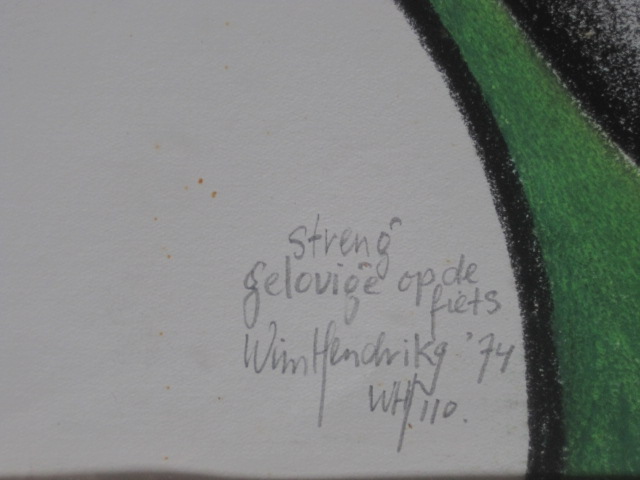 streng
gelovige op de
fiets
Wim Hendriks '74
WH/110.